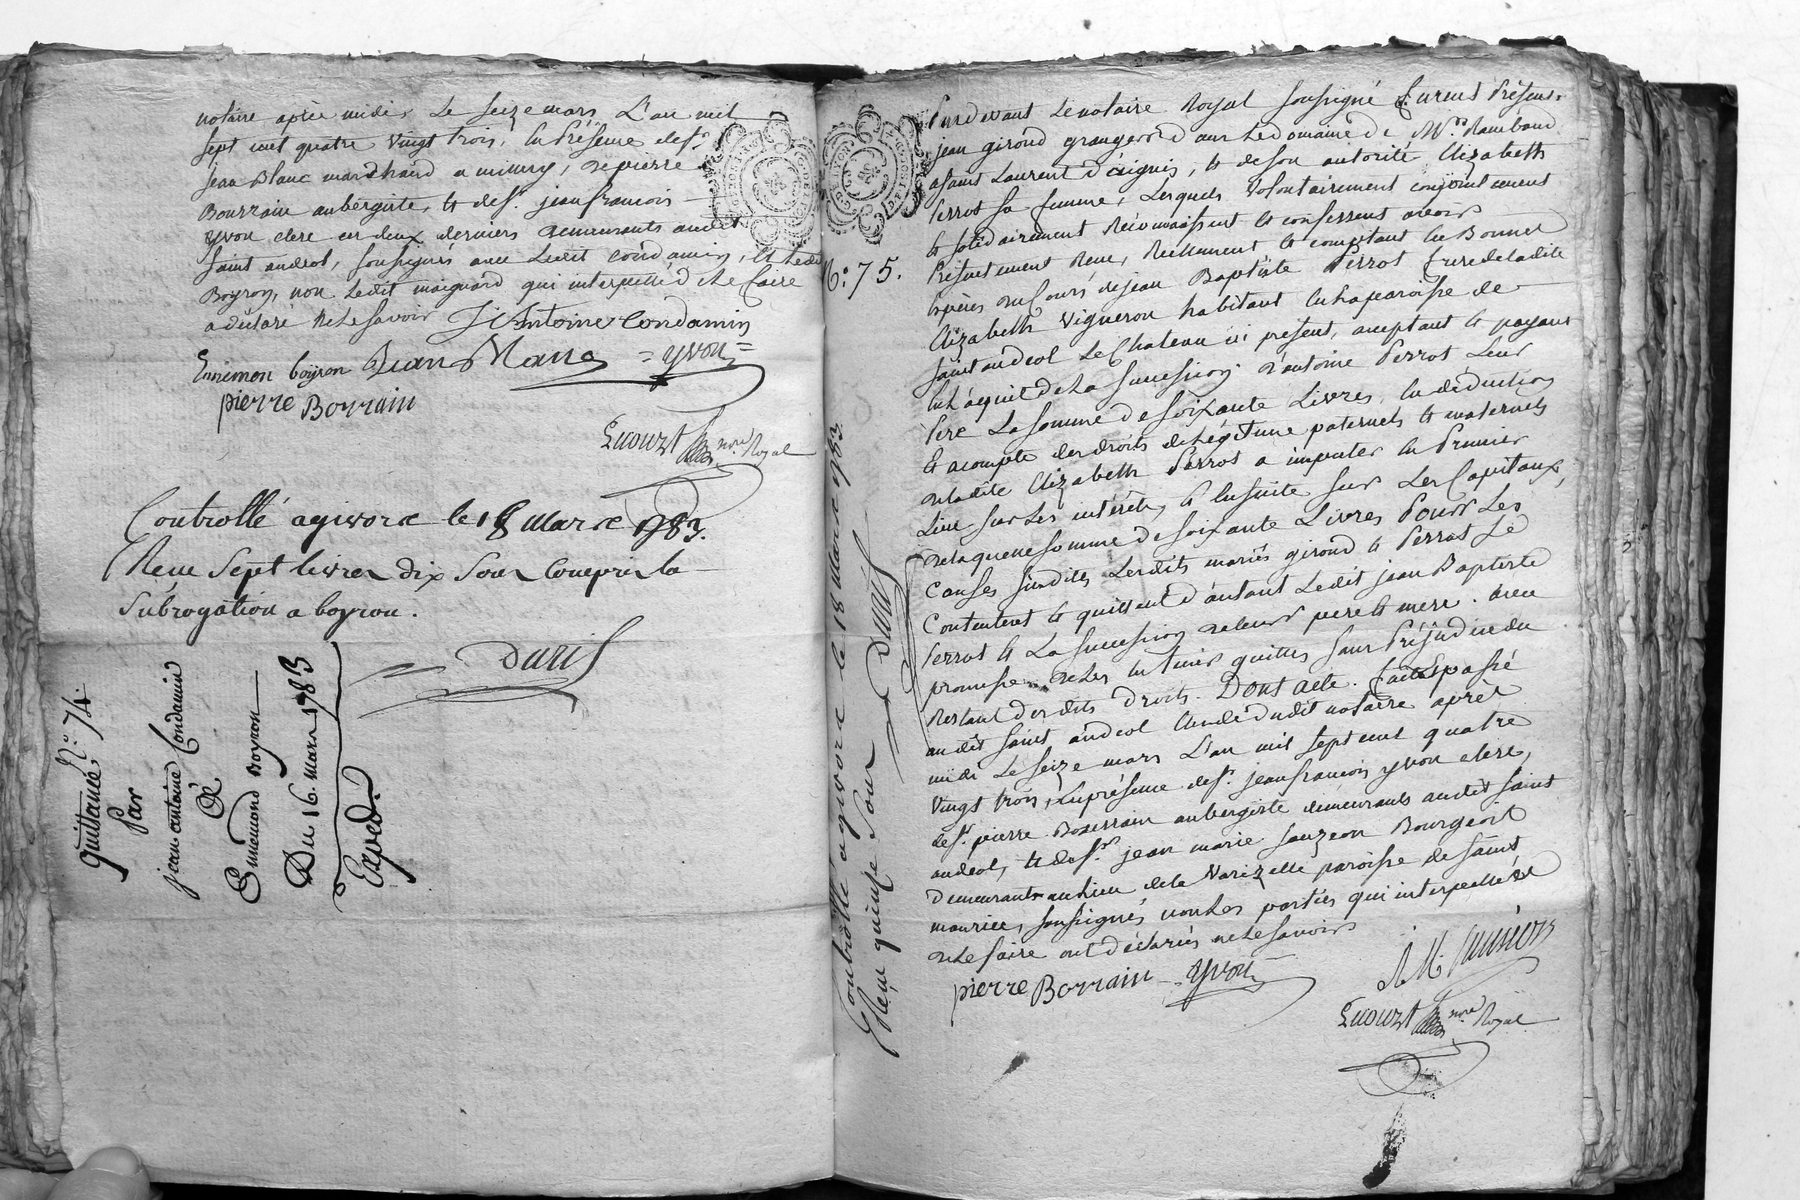 notaire après midi, Le seize mars L'an mil
sept cent quatre vingt trois, En Présence de sr.
jean Blanc marchand a mimey, de pierre
Bourrain aubergiste, & de sr. jean francois
yvon clerc ces deux derniers demeurants audit
saint andeol, soussignés avec Ledit Condamin, & Ledit
Boyron, non Ledit maignard qui interpellé de Le faire
a déclaré ne Le savoir J Antoine Condamin
Ennemon boyron Jean Blanc =yvon=
pierre Borrain
Lucourt nore. Royal
Controllé a givors le 18 mars 1783.
Reçu Sept livres dix Sous Compris la
Subrogation a boyron.
Duris
quittance No. 74.
Par
jean antoine Condamin
à
Ennemond Boyron
Du 16. mars 1783
Exped.
No. 75.
Pardevant Le notaire Royal soussigné furent Présents
jean giroud granger du domaine de Mr. Rambaud
a saint Laurent d'agnis, & de son autorité Elizabeth
Perrot sa femme, Lesquels volontairement conjointement
& solidairement Reconnaissent & confessent avoir
Présentement Reçu, Réellement & comptant En Bonnes
Espèces du Cours de jean Baptiste Perrot frere de Ladite
Elizabeth vigneron habitant En La paroisse de
saint andeol Le Chateau ici présent, acceptant & payant
En L'acquit de La succession d'antoine Perrot Leur
Pere La somme de soixante Livres, En déduction
& acompte des droits de Légitime paternels & maternels
de Ladite Elizabeth Perrot a imputer En Premier
Lieu sur Les intérêts, & Ensuite sur Les Capitaux,
De Laquelle somme de soixante Livres Pour Les
Causes susdites Lesdits mariés giroud & Perrot Se
Contentent & quittent d'autant Ledit jean Baptiste
Perrot & La succession de Leurs pere & mere. avec
promesse de Les En tenir quittes sans Préjudice du
Restant desdits Droits. Dont Acte. fait & passé
audit saint andeol Etude dudit notaire après
midi Le seize mars L'an mil sept cent quatre
vingt trois, En présence de sr. jean francois yvon clerc,
de sr. pierre Bourrain aubergiste demeurants audit saint
andeol, & de sr. jean marie Bourgeois
Demeurants au Lieu de La Varizelle paroisse de saint
maurice, soussignés non Les parties qui interpellées
de Le faire ont déclarées ne Le savoir
pierre Borrain =yvon=
Lucourt nore. Royal
Controllé a givors le 18 mars 1783.
Reçu quinse sous Duris